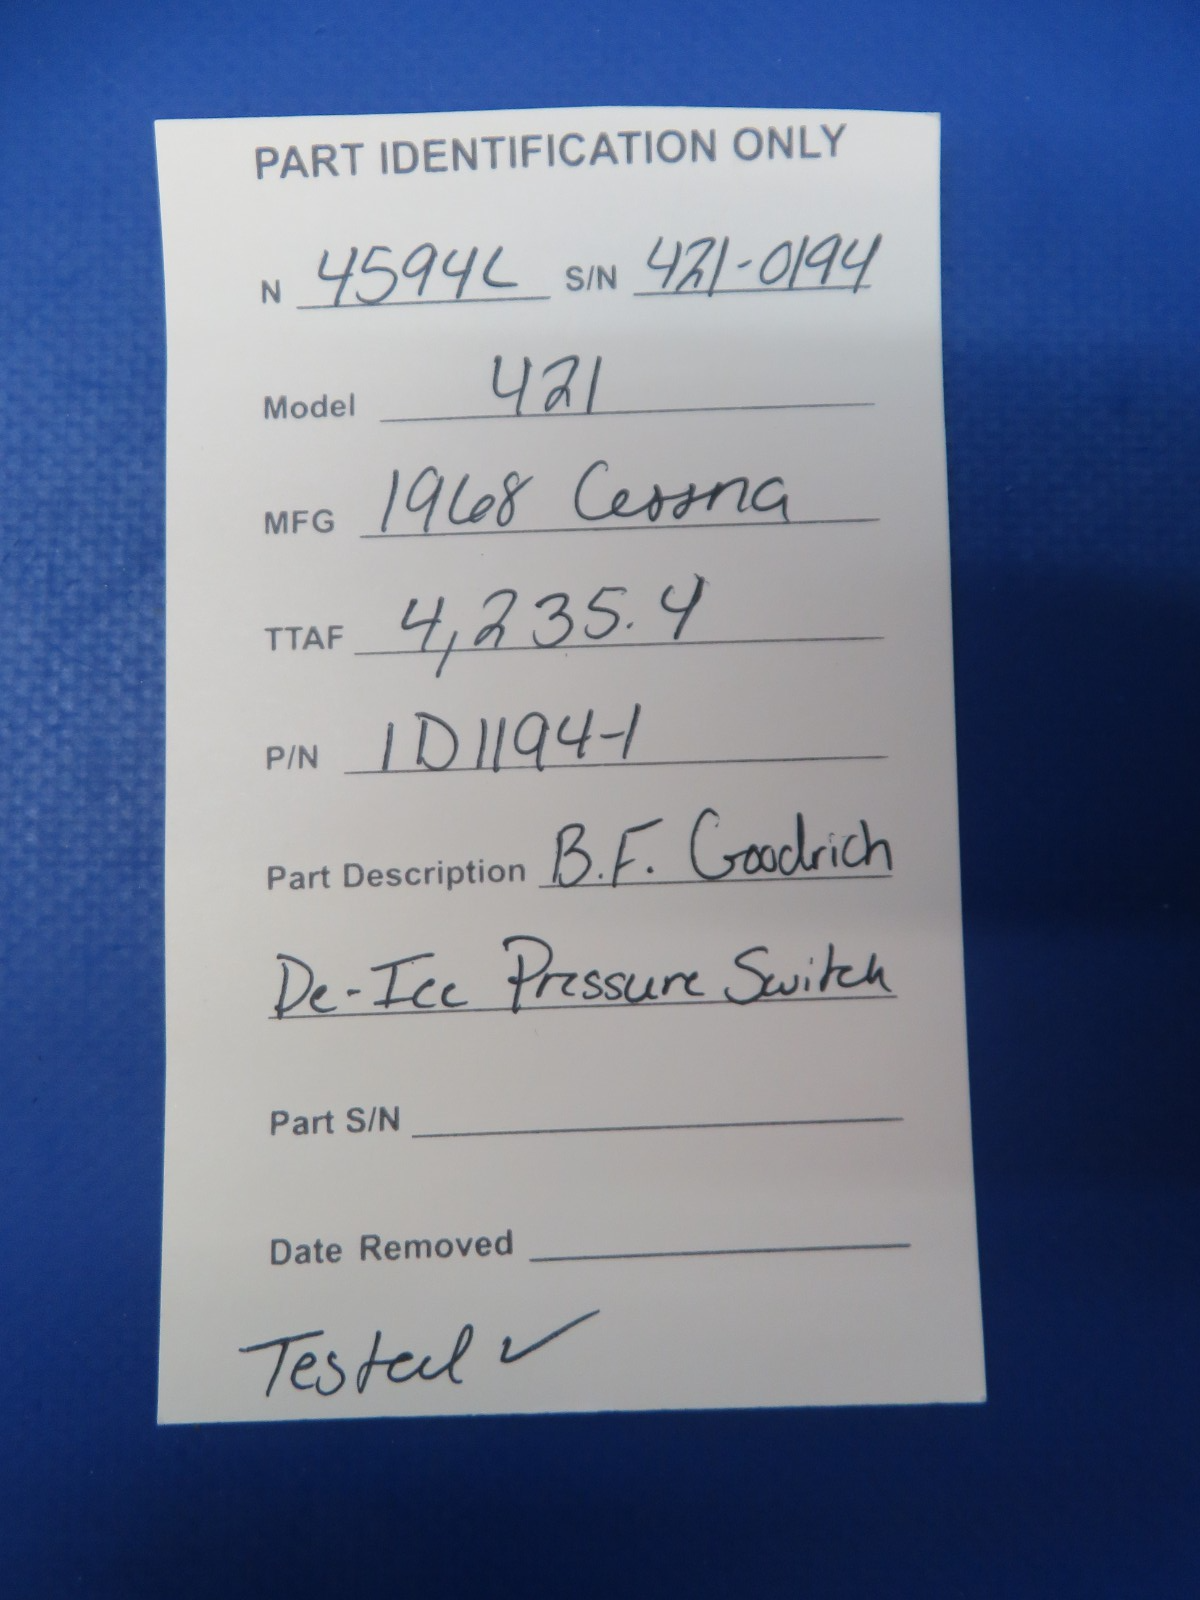 PART IDENTIFICATION ONLY
N 4594L S/N 421-0194
Model 421
MFG 1968 Cessna
TTAF 4,235.4
P/N 1D1194-1
Part Description B.F. Goodrich
De-Ice Pressure Switch
Part S/N
Date Removed
Tested ✓